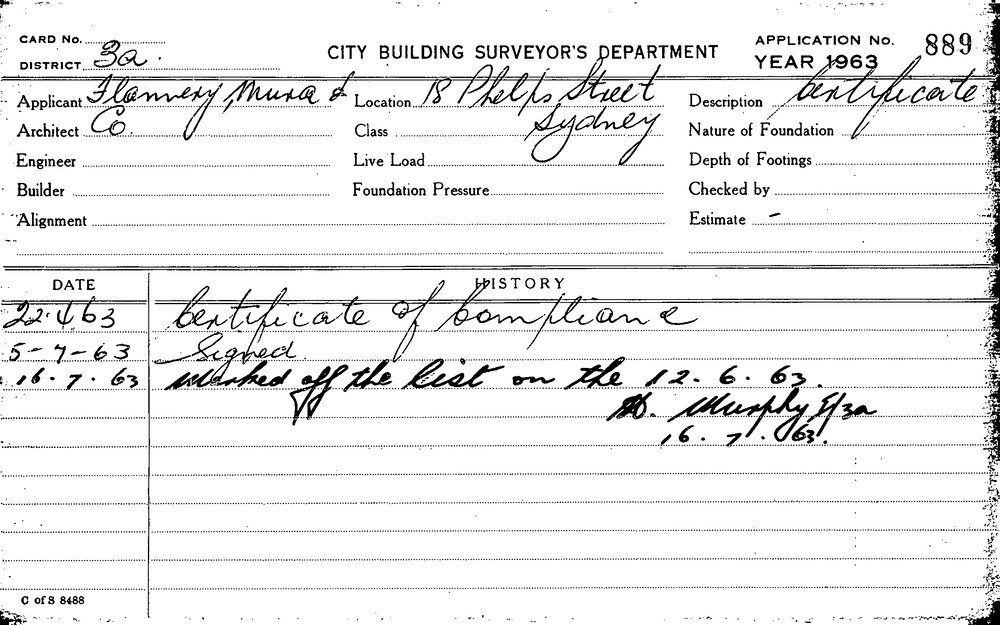 CARD No.
DISTRICT 3a.
CITY BUILDING SURVEYOR'S DEPARTMENT
APPLICATION No. 889
YEAR 1963
Applicant Flannery, Mura &
Architect Co.
Engineer
Builder
Alignment
Location 18 Phelps Street
Class Sydney
Live Load
Foundation Pressure
Description Certificate
Nature of Foundation
Depth of Footings
Checked by
Estimate -
DATE HISTORY
22.4.63 Certificate of Compliance
5-7-63 Signed
16.7.63 Marked off the list on the 12.6.63.
Murphy
16.7.63.
C of S 8488